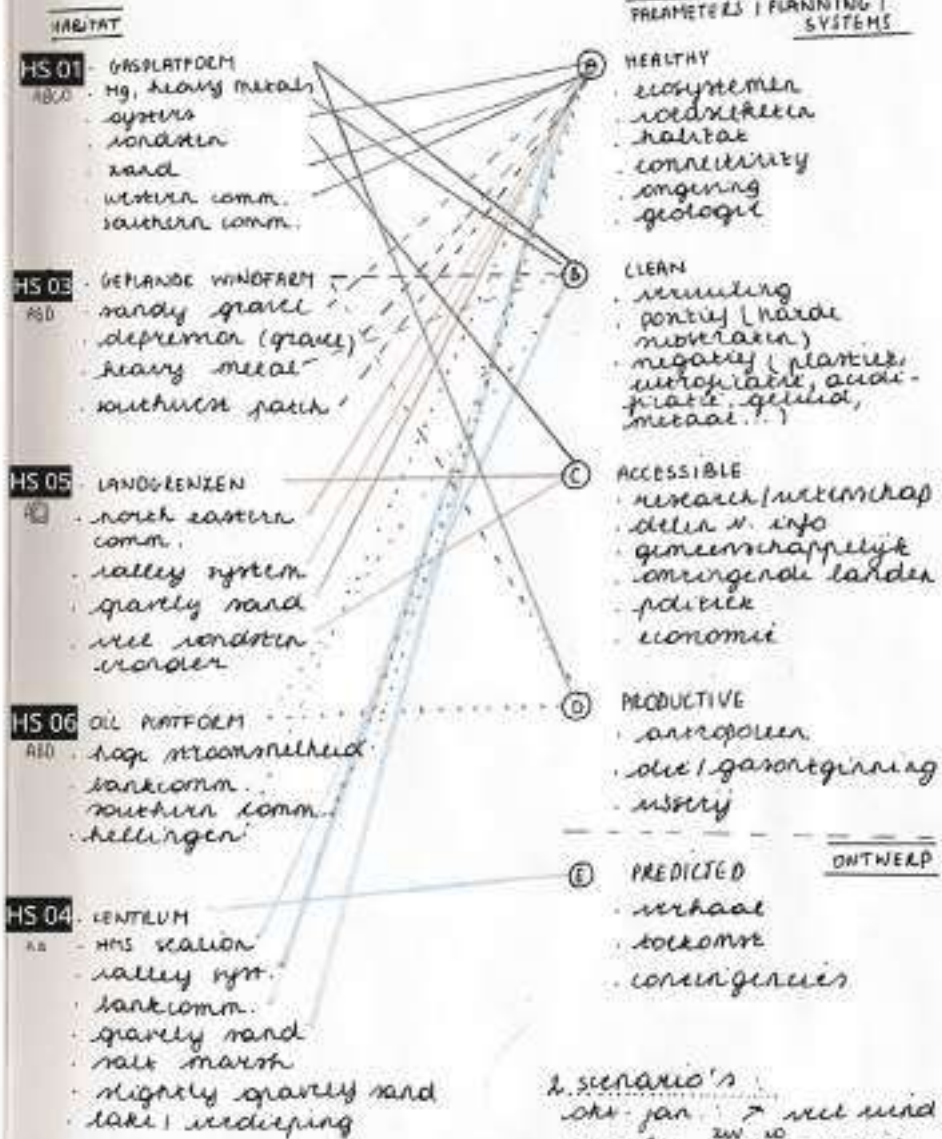 HABITAT
HS 01
ABCD
· GASPLATFORM
· Hg, heavy metals
· oysters
· wrakken
· zand
· western comm.
southern comm.
HS 03
ABD
· GEPLANDE WINDFARM
· sandy gravel
· depression (gravel)
· heavy metal
· southwest patch
HS 05
· LANDGRENZEN
· north eastern
comm.
· valley system
· gravely sand
HS 06
ABD
OIL PLATFORM
· hoge stroomsnelheid
· bankcomm.
southern comm.
· hellingen
HS 04
· HMS
· valley syst.
· bankcomm.
· gravely sand
· salt marsh
· slightly gravely sand
· lake / verdieping
PARAMETERS | PLANNING |
SYSTEMS
A HEALTHY
· ecosystemen
· habitat
· connectivity
· omgeving
· geologie
B CLEAN
· vervuiling
· positief (harde
substraten)
· negatief (plastiek,
metaal...)
C ACCESSIBLE
· research / wetenschap
· delen v. info
· gemeenschappelijk
· omringende landen
· politiek
· economie
D PRODUCTIVE
· antropoceen
· olie / gasontginning
· visserij
ONTWERP
E PREDICTED
· verhaal
· toekomst
· contingencies
2 scenario's :
okt - jan : → veel wind